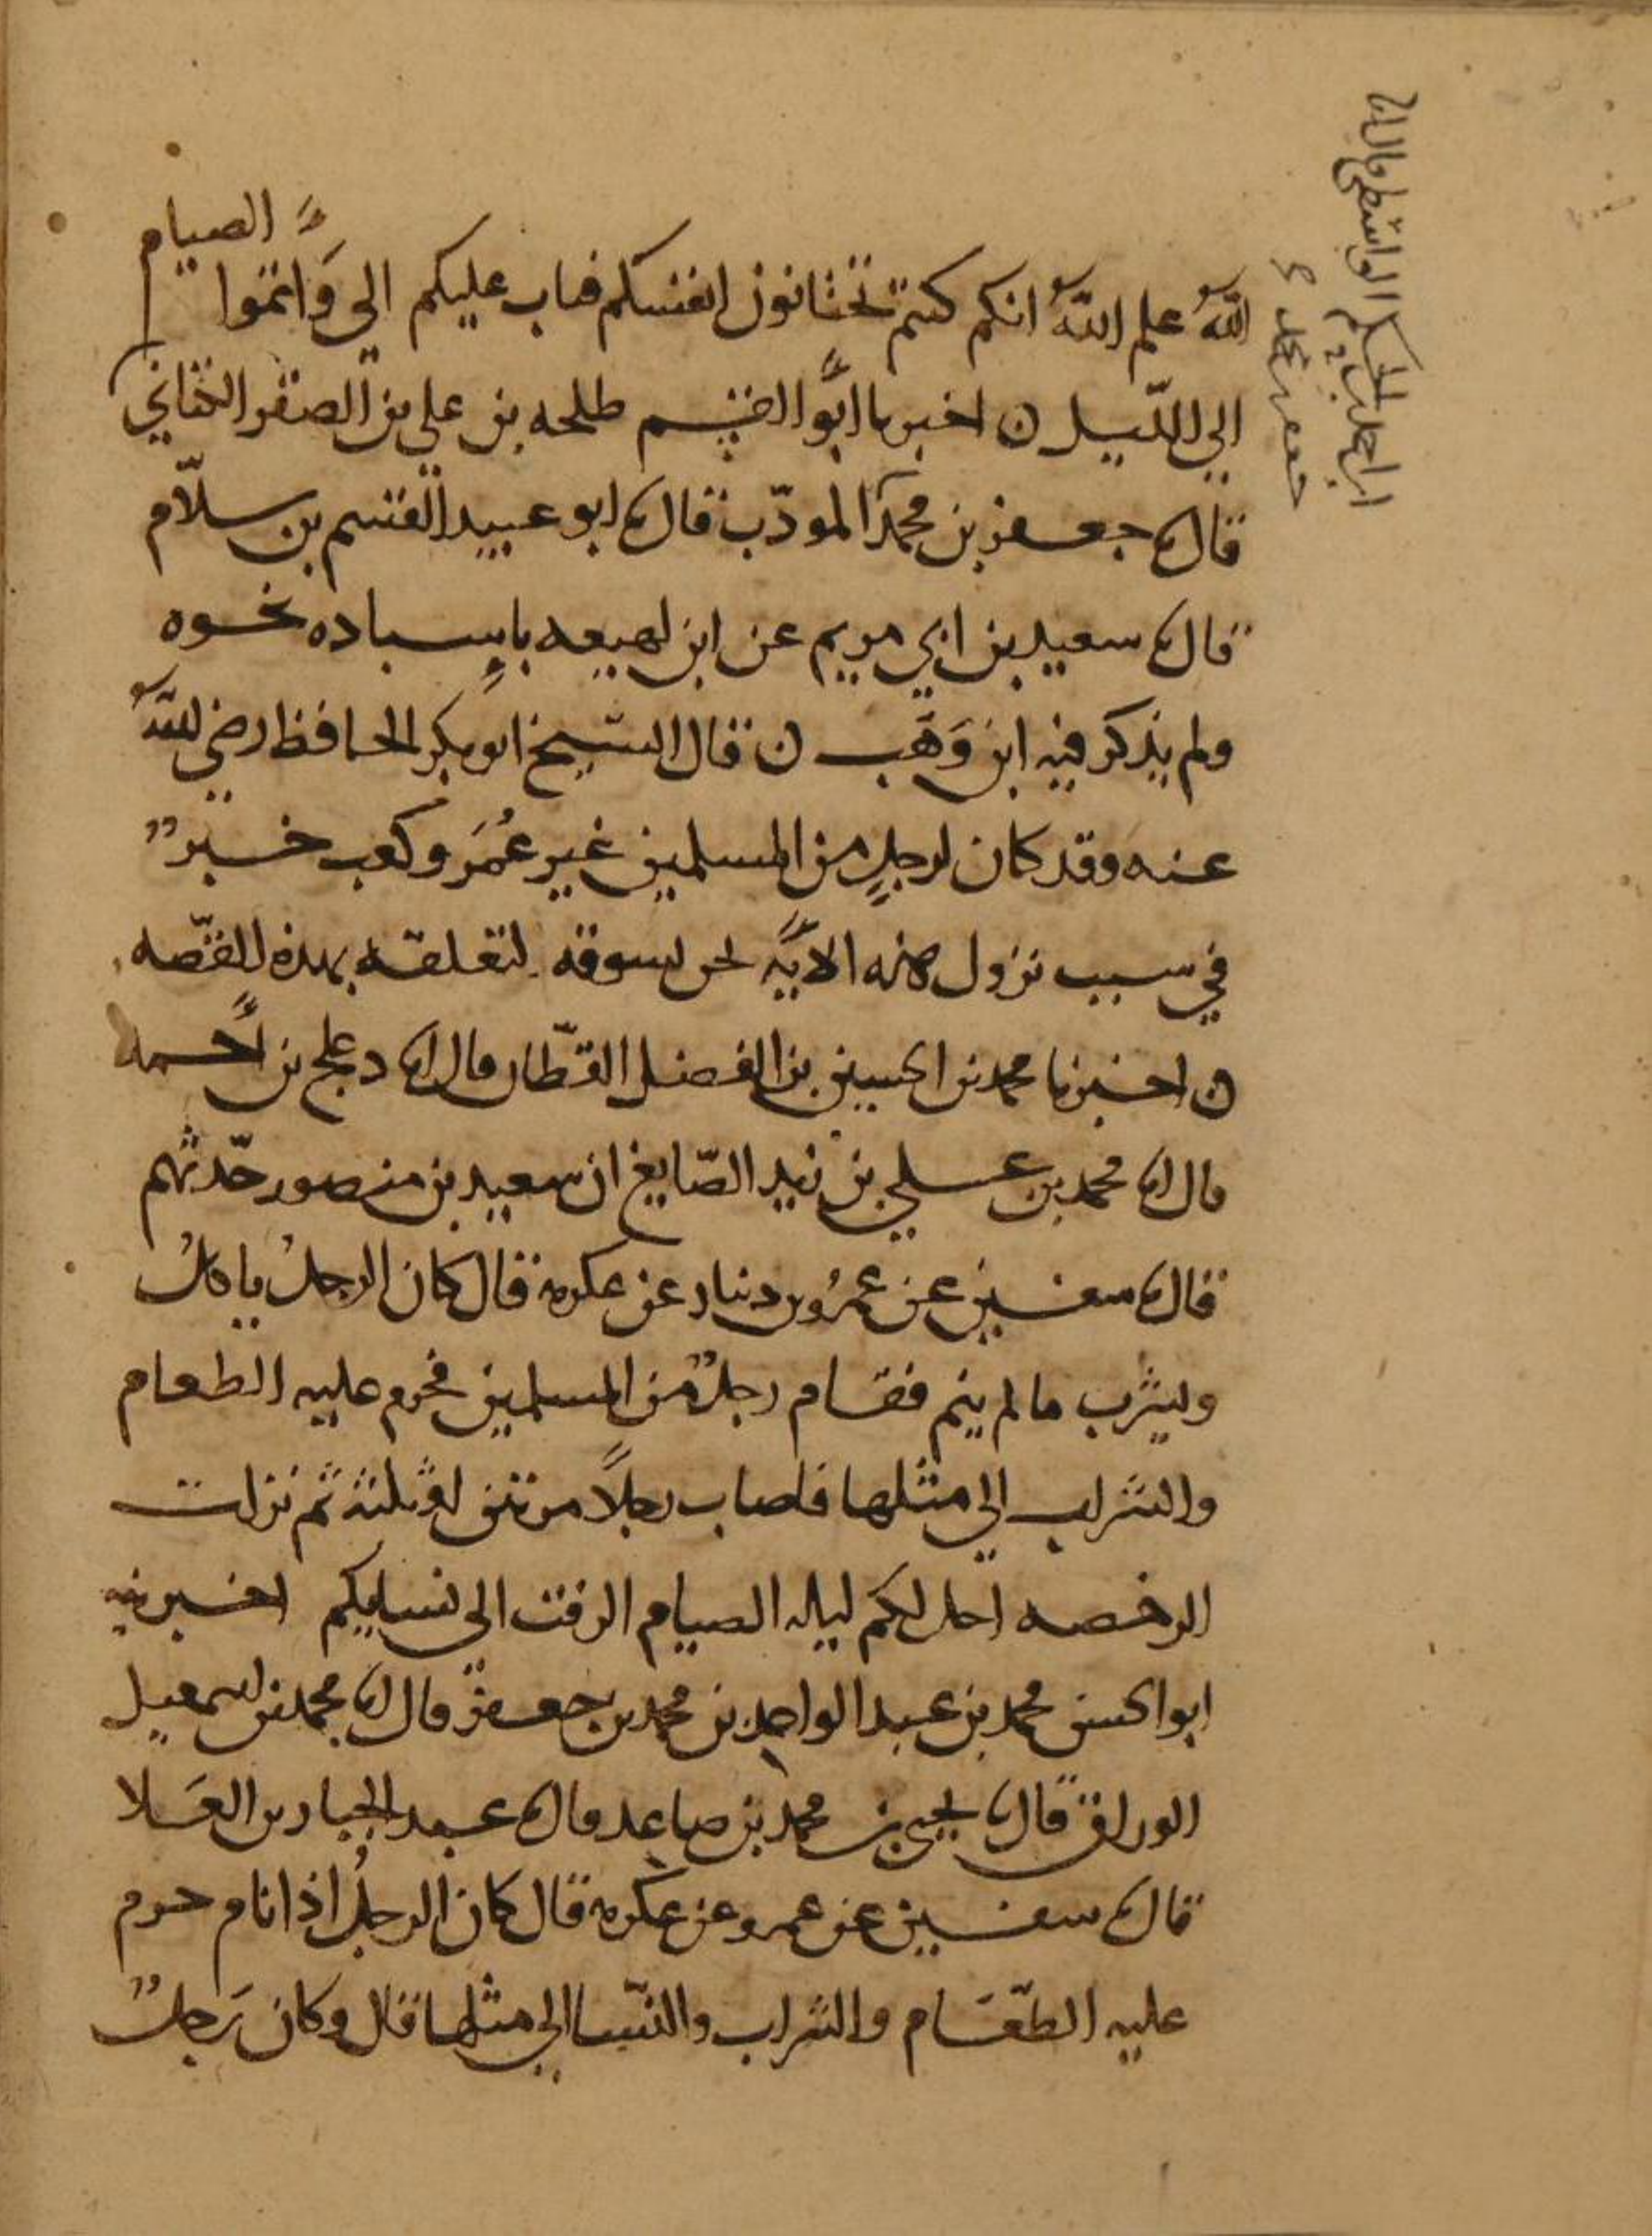 الله علم الله انكم كنتم تختانون انفسكم فتاب عليكم الى واتموا الصيام
الى الليل ن اخبرنا ابو القسم طلحه بن علي بن الصقر الكتاني
قال نا جعفر بن محمد المودب قال نا ابو عبيد القسم بن سلام
قال نا سعيد بن ابي مريم عن ابن لهيعه باسناده نحوه
ولم يذكر فيه ابن وهب ن قال الشيخ ابو بكر الحافظ رضي الله
عنه وقد كان لرجل من المسلمين غير عمر وكعب خبر
في سبب نزول هذه الآية نحن نسوقه لتعلقه بهذه القصه
ن اخبرنا محمد بن الحسين بن الفضل القطان قال انا دعلج بن احمد
قال انا محمد بن علي بن زيد الصايغ ان سعيد بن منصور حدثهم
قال نا سفين عن عمرو بن دينار عن عكرمه قال كان الرجل ياكل
ويشرب ما لم ينم فقام رجل من المسلمين فحرم عليه الطعام
والشراب الى مثلها فاصاب رجلا مرتين او ثلثه ثم نزلت
الرخصه احل لكم ليله الصيام الرفث الى نسايكم اخبرنيه
ابو الحسن محمد بن عبد الواحد بن محمد بن جعفر قال انا محمد بن اسمعيل
الوراق قال نا يحيى بن محمد بن صاعد قال نا عبد الجبار بن العلا
قال نا سفين عن عمرو عن عكرمه قال كان الرجل اذا نام حرم
عليه الطعام والشراب والنسا الى مثلها قال وكان رجل
احمد بن الحكم الواسطي قال انا
جعفر بن محمد